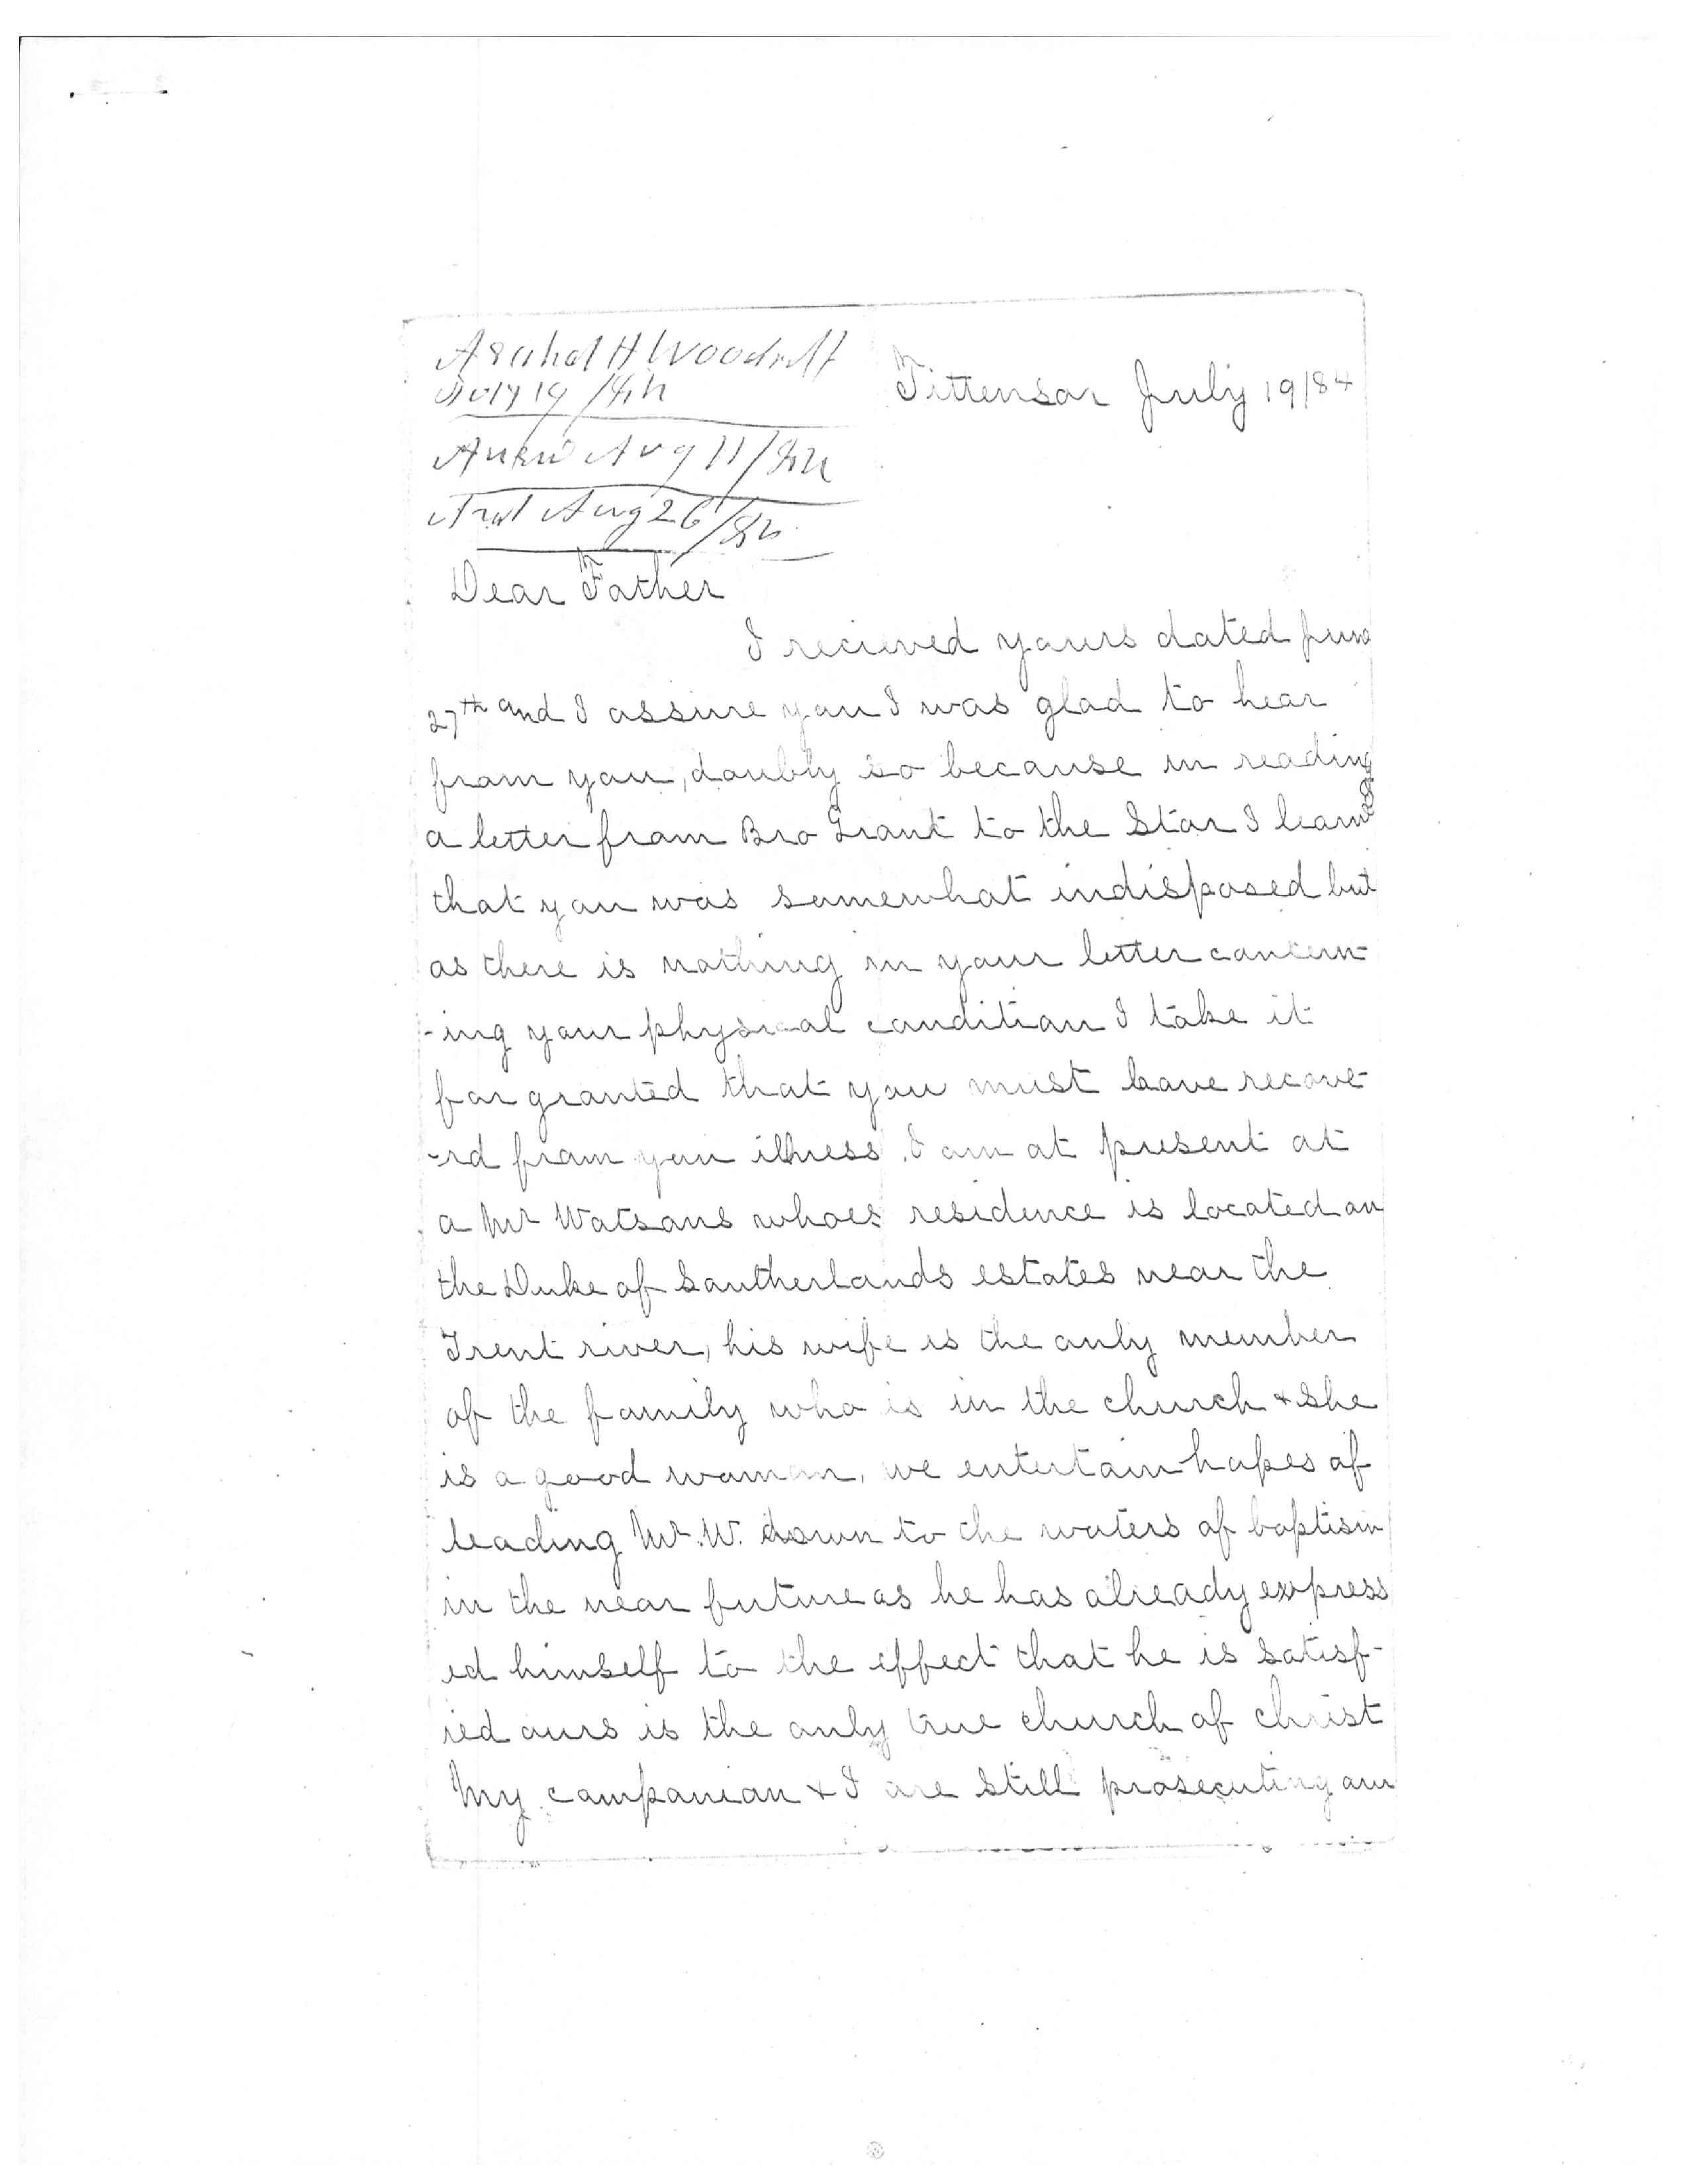 Asahel H Woodruff
July 19/84
Tittensor July 19/84
Aug 11/84
Aug 26/84
Dear Father
I recieved yours dated June
27th and I assure you I was glad to hear
from you, doubly so because in reading
a letter from Bro Grant to the Star I learnd
that you was somewhat indisposed but
as there is nothing in your letter concern-
-ing your physical condition I take it
for granted that you must have recove-
-rd from your illness. I am at present at
a Mr Watsons whoes residence is located on
the Duke of Southerlands estates near the
Trent river, his wife is the only member
of the family who is in the church & she
is a good woman, we entertain hopes of
leading Mr. W. down to the waters of baptism
in the near future as he has already express
ed himself to the effect that he is satisf-
ied ours is the only true church of christ
My companion & I are still prosecuting our